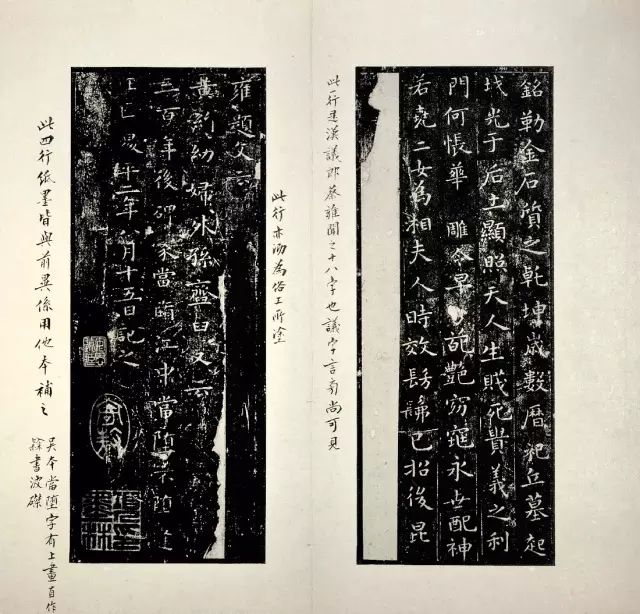 銘勒金石質之乾坤歲數曆祀丘墓起
墳光于后土顯照天人生賎死貴義之利
門何悵華 雕零早 葩艶窈窕永世配神
若堯二女為相夫人時效髣髴已招後昆
此一行是漢議郎蔡雍聞之十八字也議字言旁尚可見
此行亦泐為俗工所塗
雍題文云
黃絹幼婦外孫韲臼又云
三百年後碑冢當墮江中當墮不墮逢
王叵 二年 月十五日記之
此四行紙墨皆與前異係用他本補之
吳本當墮字有上畫自作
隸書波磔